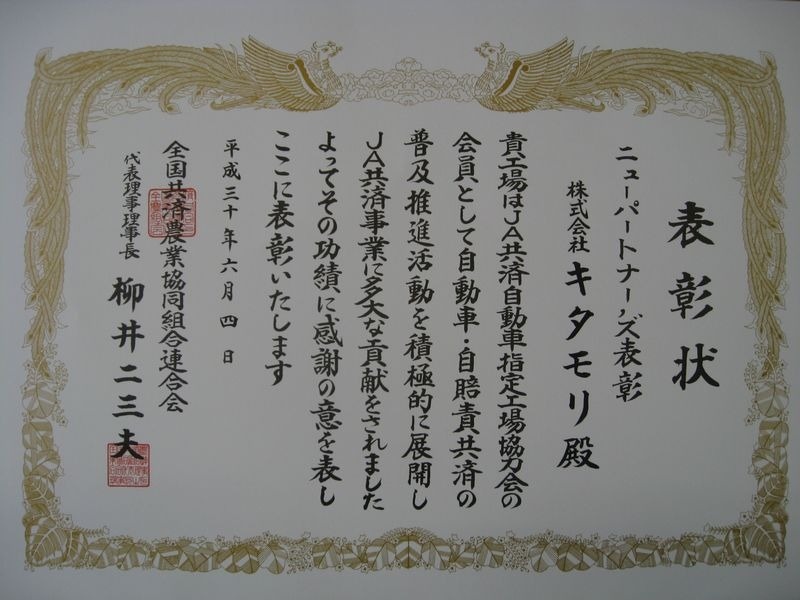 表彰状
ニューパートナーズ表彰
株式会社 キタモリ殿
貴工場はJA共済自動車指定工場協力会の
会員として自動車・自賠責共済の
普及推進活動を積極的に展開し
JA共済事業に多大な貢献をされました
よってその功績に感謝の意を表し
ここに表彰いたします
平成三十年六月四日
全国共済農業協同組合連合会
代表理事理事長 柳井二三夫